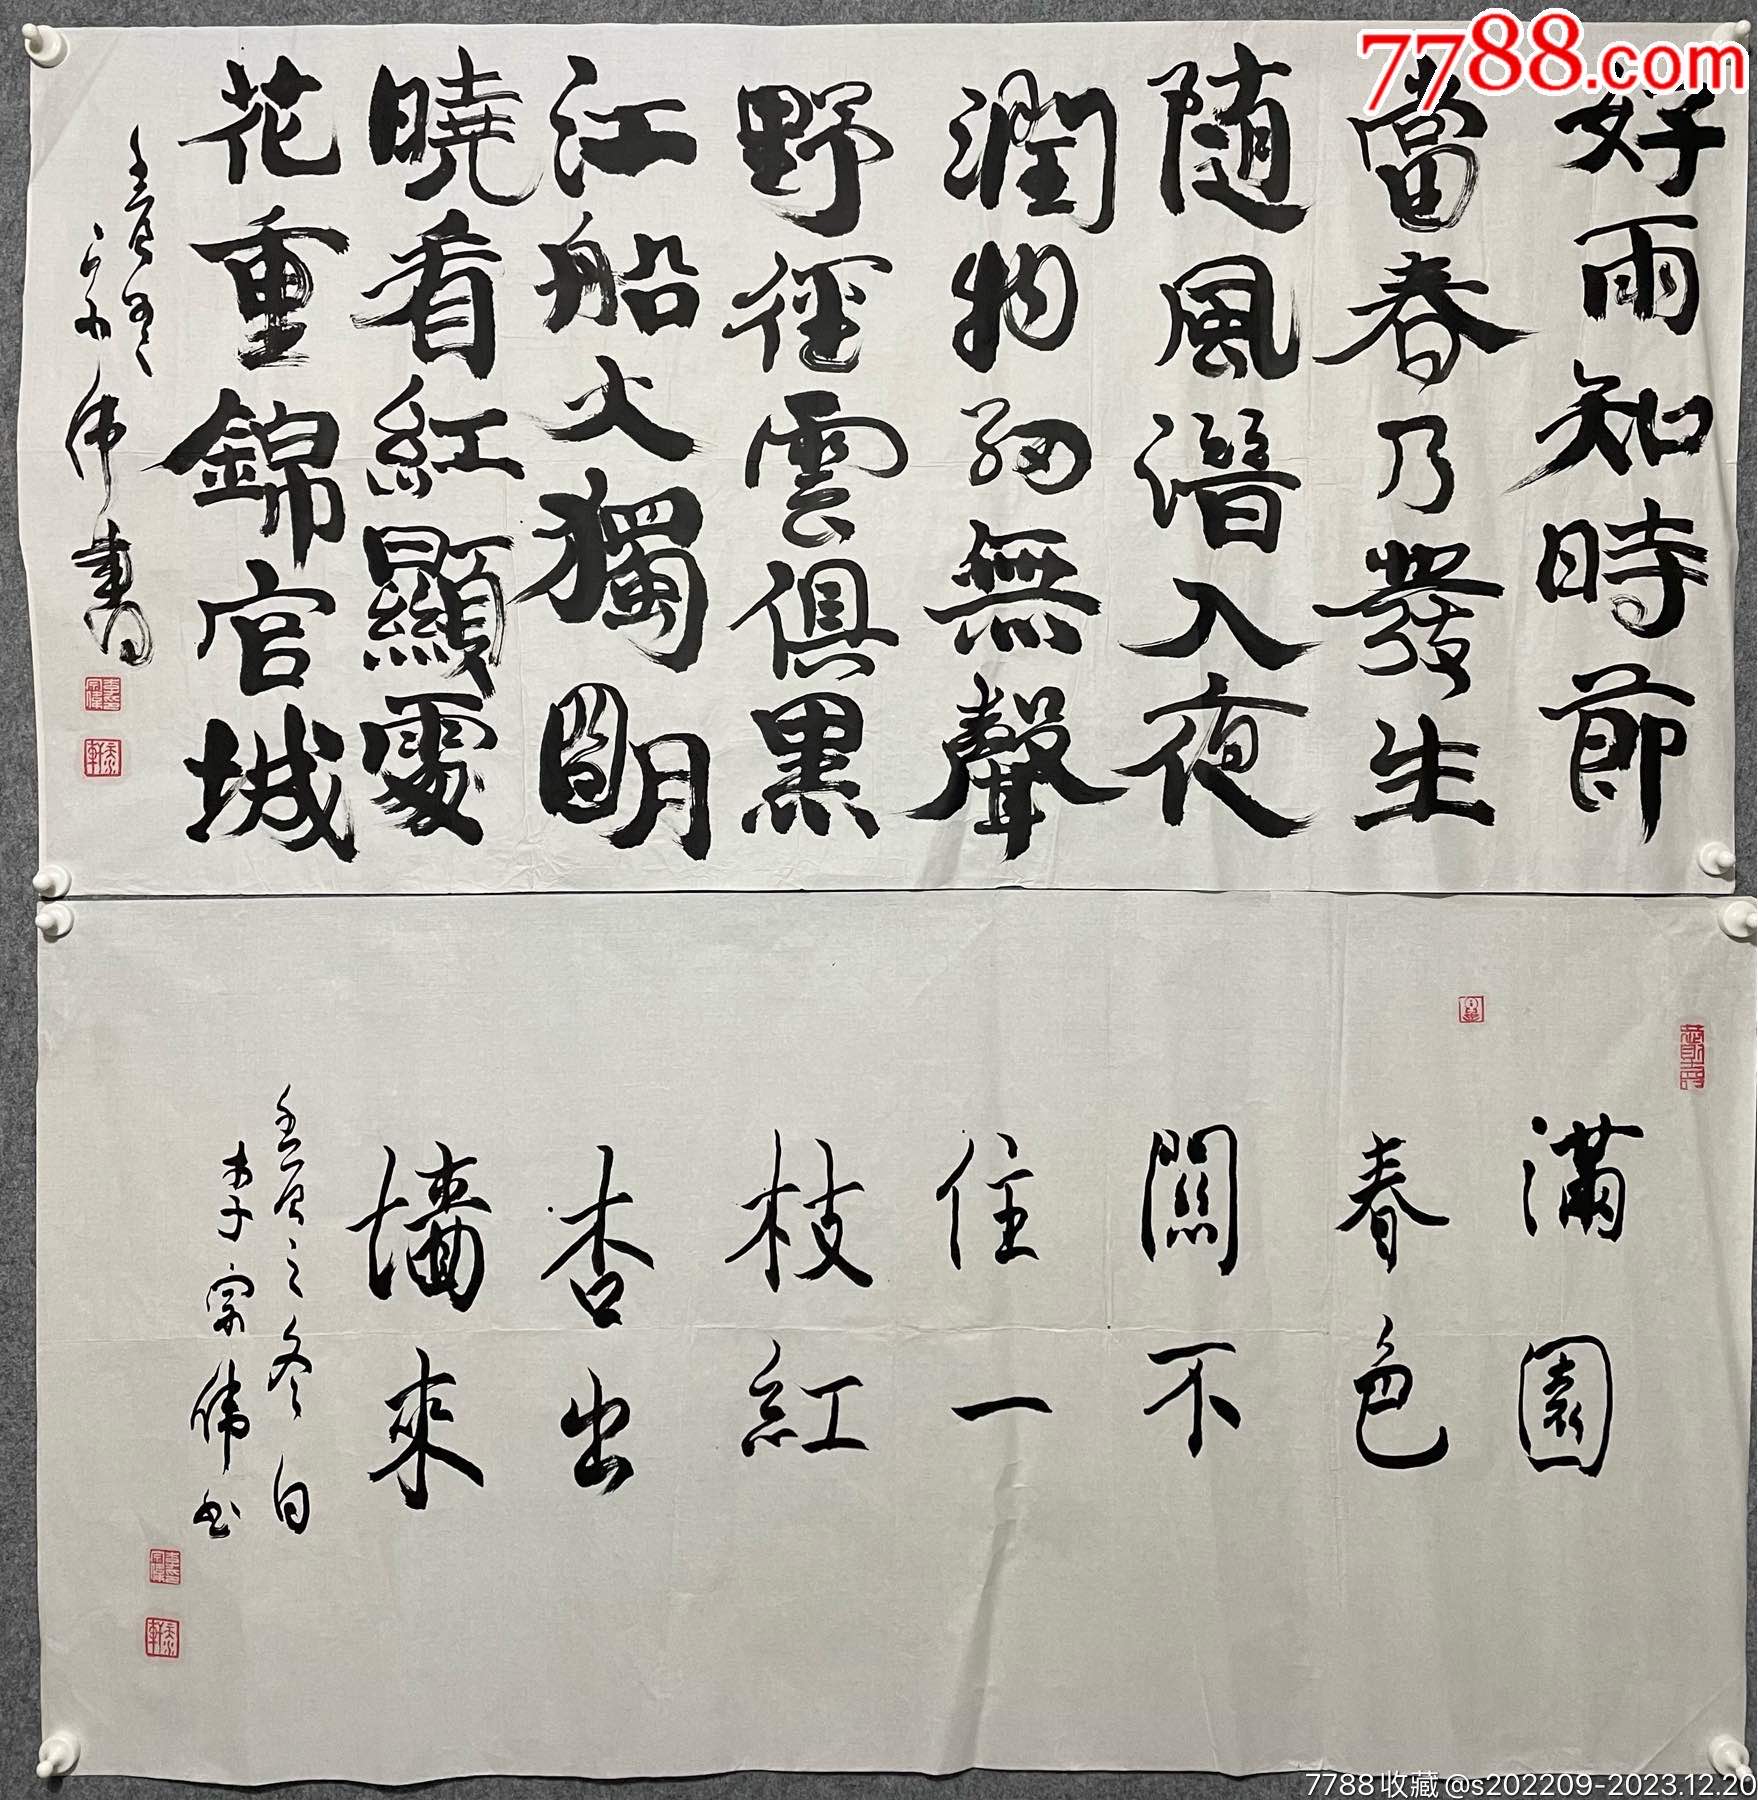 7788.com
好雨知時節
當春乃發生
随風潛入夜
潤物細無聲
野徑雲俱黑
江船火獨明
曉看紅顯處
花重錦官城
壬寅冬
宗伟書
滿園
春色
關不
住一
枝紅
杏出
墻來
壬寅之冬日
李宗伟书
7788收藏@s202209-2023.12.20